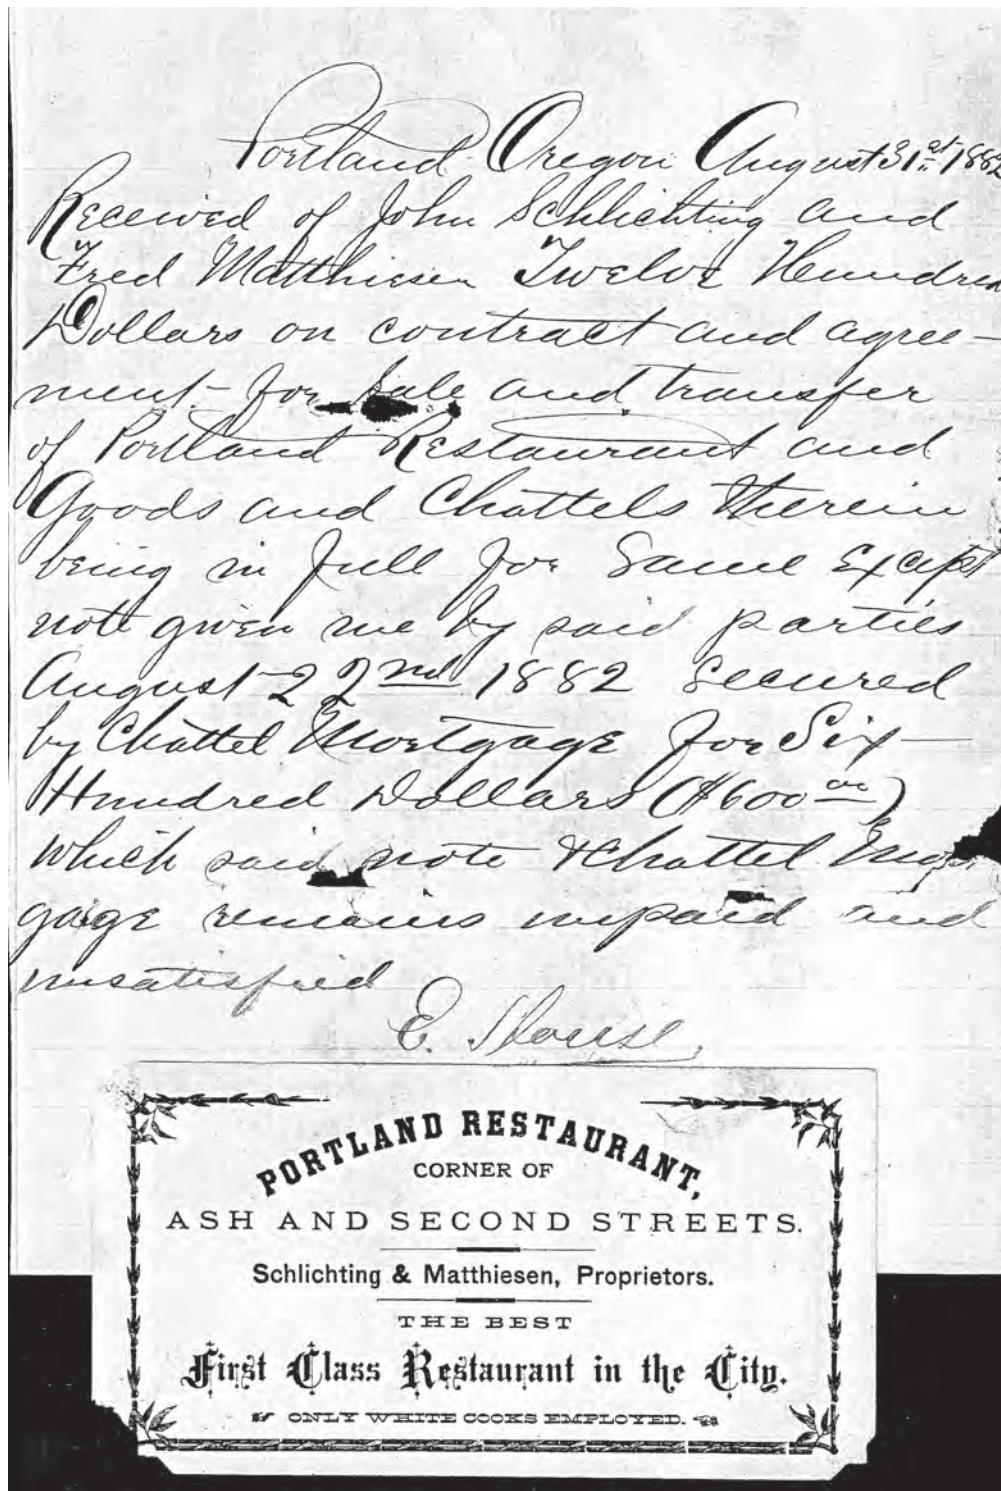 Portland Oregon August 31st 1882
Received of John Schlichting and
Fred Matthiesen Twelve Hundred
Dollars on contract and agree-
ment for sale and transfer
of Portland Restaurant and
Goods and Chattels therein
being in full for Same Except
note given me by said parties
August 22nd 1882 Secured
by Chattel Mortgage for Six
Hundred Dollars ($600 00)
which said note & Chattel Mort
gage remains unpaid and
unsatisfied
E. House
PORTLAND RESTAURANT,
CORNER OF
ASH AND SECOND STREETS.
Schlichting & Matthiesen, Proprietors.
THE BEST
First Class Restaurant in the City.
☞ ONLY WHITE COOKS EMPLOYED. ☜